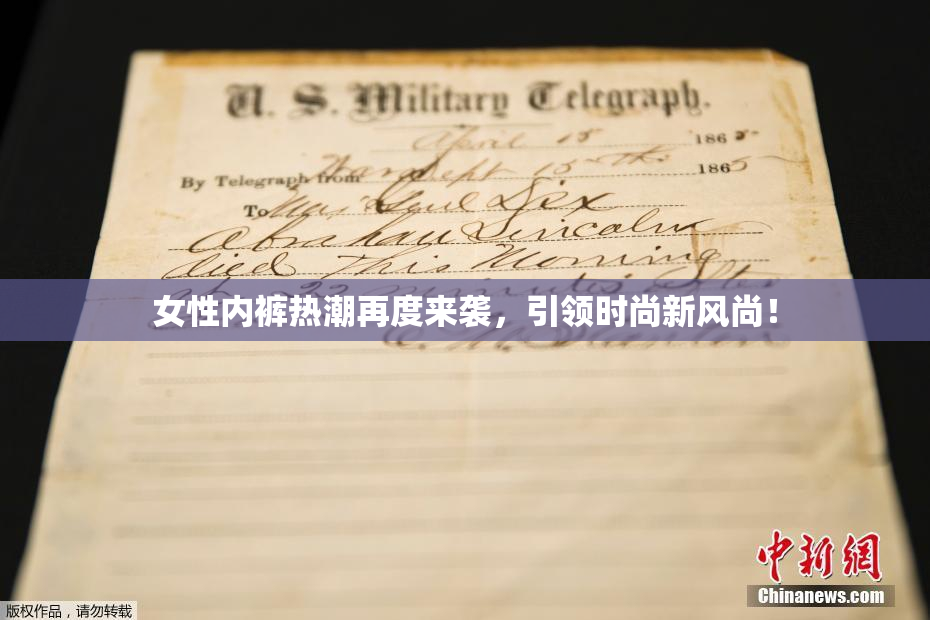 U. S. Military Telegraph.
April 15 1865
By Telegraph from War Dept 15th 1865
To Maj Genl Dix
Abraham Lincoln
died This Morning
at 22 minutes after
女性内裤热潮再度来袭，引领时尚新风尚！
中新网
Chinanews.com
版权作品，请勿转载